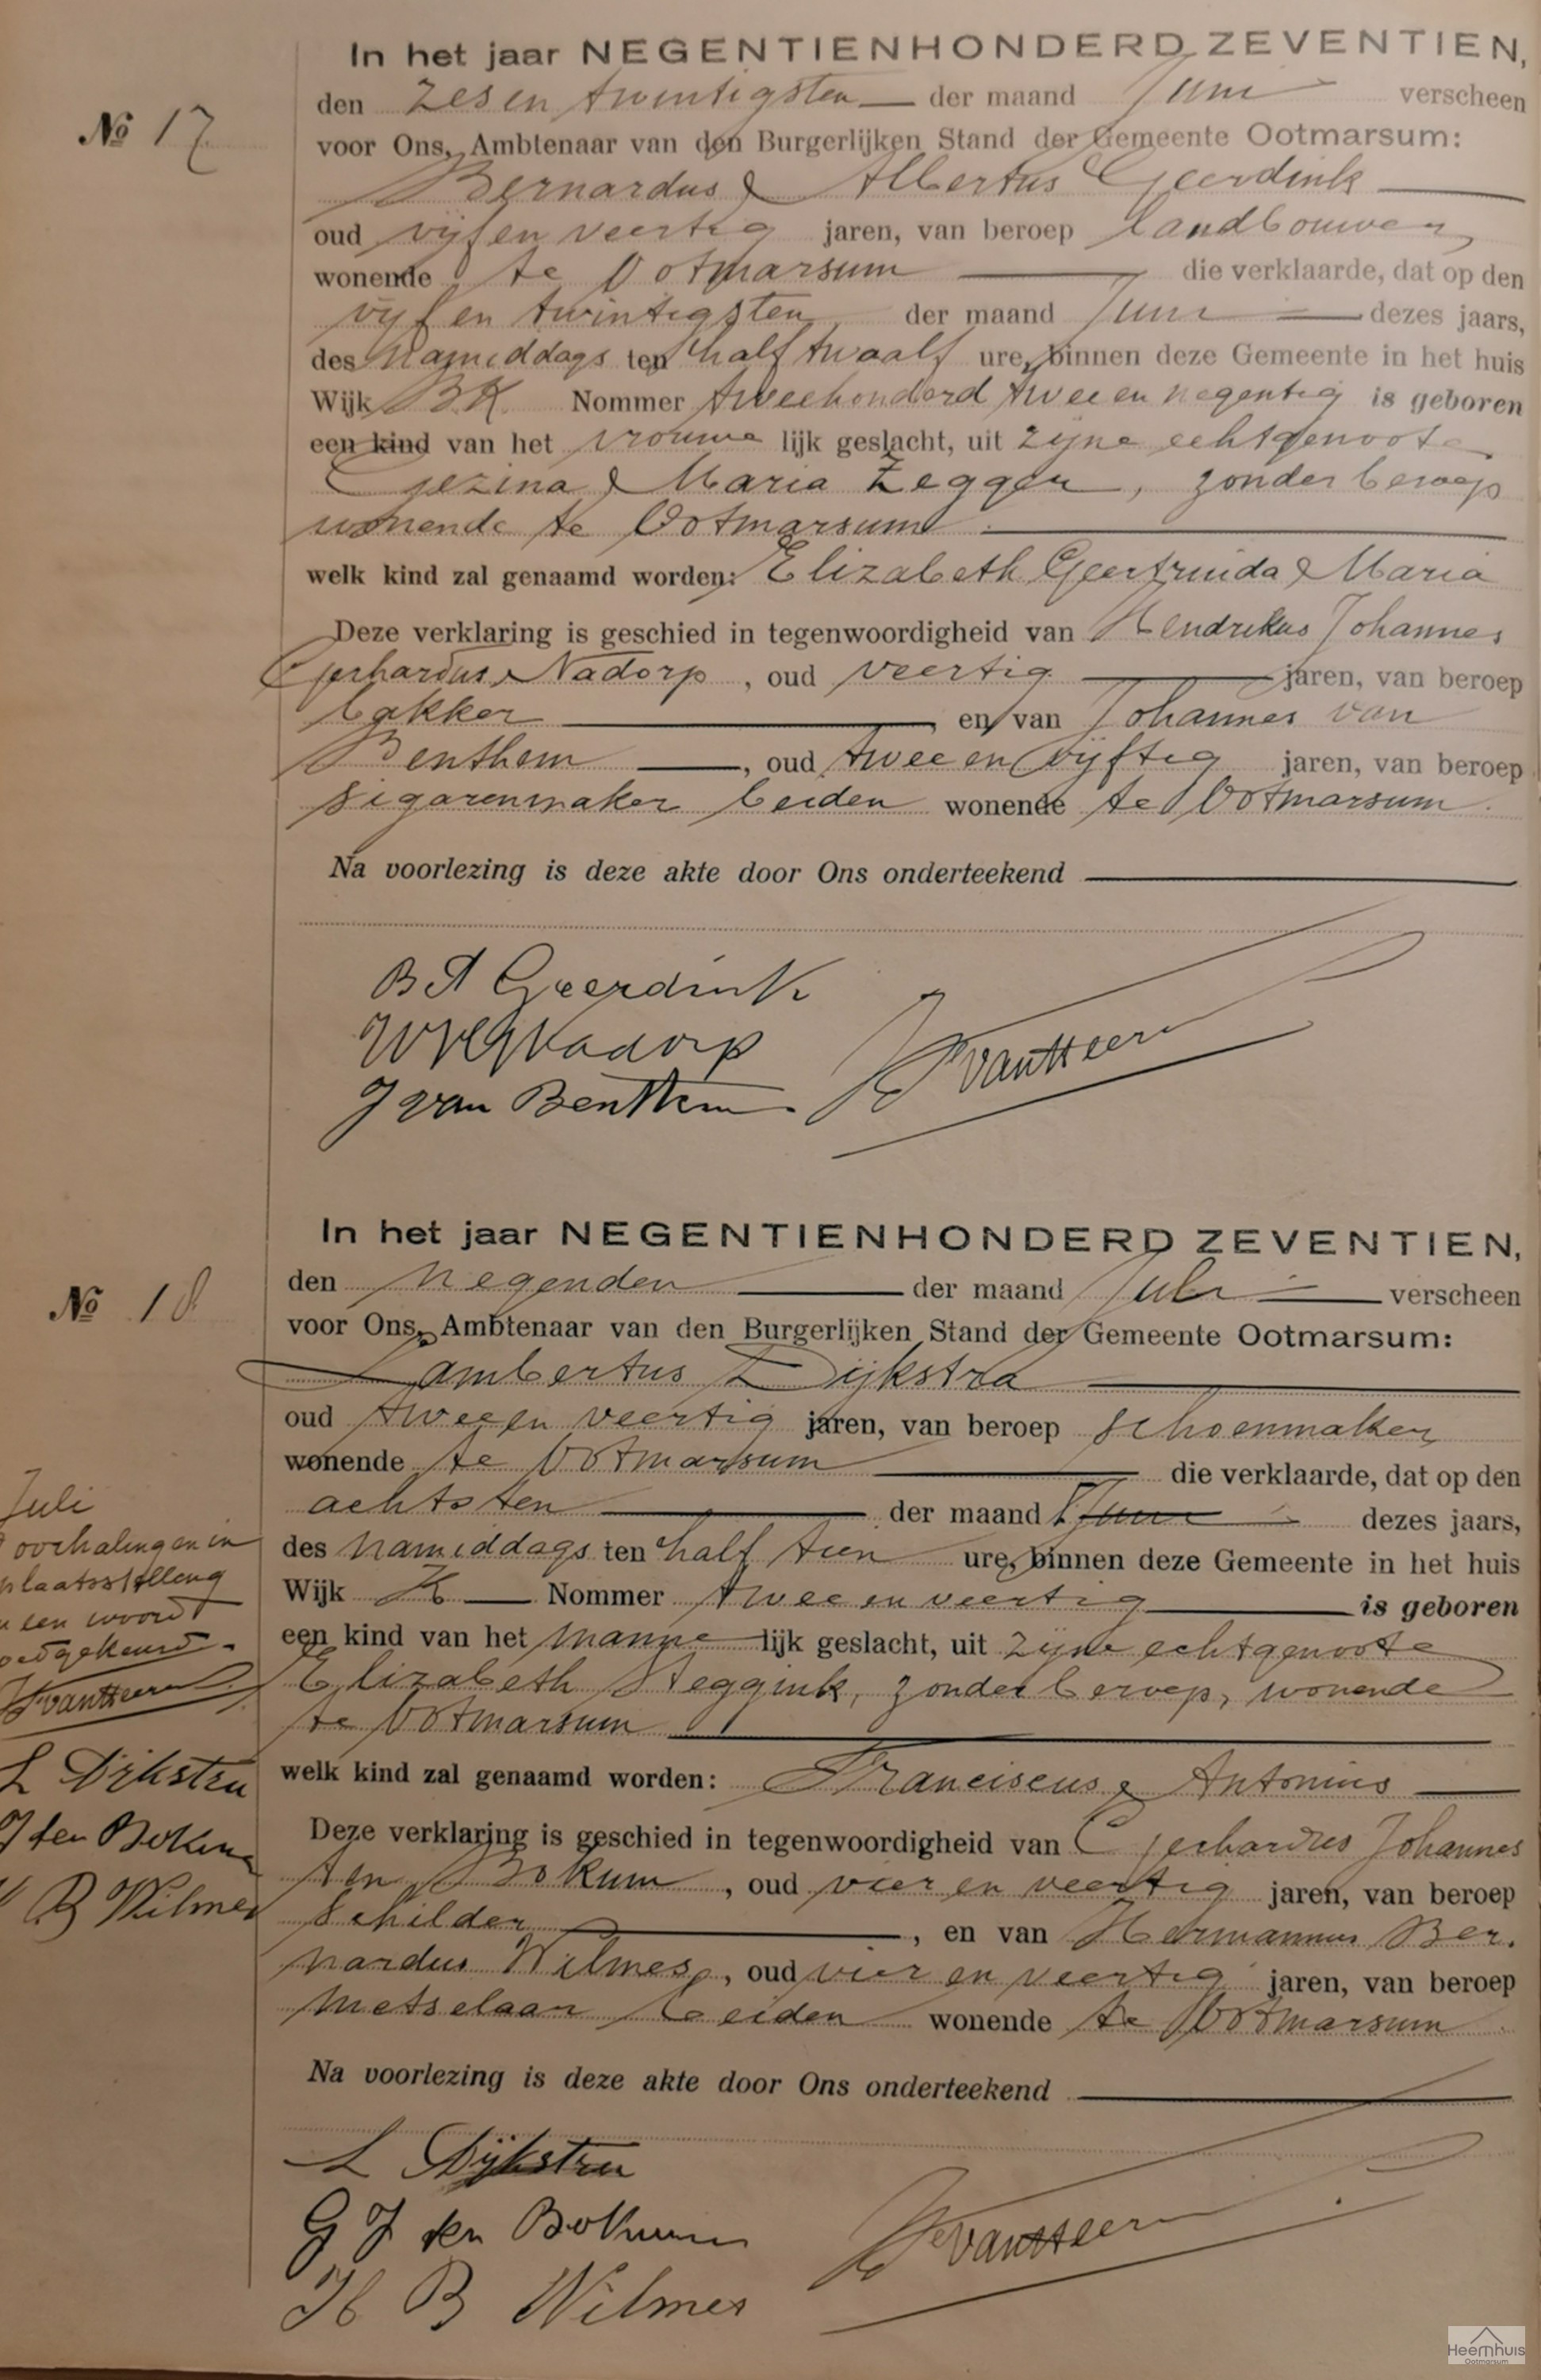 In het jaar NEGENTIENHONDERD ZEVENTIEN,
den zes en twintigsten der maand Juni verscheen
No 17
voor Ons, Ambtenaar van den Burgerlijken Stand der Gemeente Ootmarsum:
Bernardus Albertus Geerdink
oud vijf en veertig jaren, van beroep landbouwer,
wonende te Ootmarsum die verklaarde, dat op den
vijf en twintigsten der maand Juni dezes jaars,
des namiddags ten half twaalf ure, binnen deze Gemeente in het huis
Wijk B.K. Nommer tweehonderd twee en negentig is geboren
een kind van het vrouwe lijk geslacht, uit zijne echtgenoote
Gezina Maria Zegger, zonder beroep
wonende te Ootmarsum
welk kind zal genaamd worden: Elizabeth Geertruida Maria
Deze verklaring is geschied in tegenwoordigheid van Hendrikus Johannes
Gerhardus Nadorp, oud veertig jaren, van beroep
bakker en van Johannes van
Benthem, oud twee en vijftig jaren, van beroep
sigarenmaker beiden wonende te Ootmarsum.
Na voorlezing is deze akte door Ons onderteekend
B A Geerdink
Nadorp
J van Benthem.
In het jaar NEGENTIENHONDERD ZEVENTIEN,
den negenden der maand Juli verscheen
No 18
voor Ons, Ambtenaar van den Burgerlijken Stand der Gemeente Ootmarsum:
Lambertus Dijkstra
oud twee en veertig jaren, van beroep schoenmaker,
wonende te Ootmarsum die verklaarde, dat op den
achtsten der maand Juni dezes jaars,
des namiddags ten half tien ure, binnen deze Gemeente in het huis
Wijk K Nommer twee en veertig is geboren
een kind van het manne lijk geslacht, uit zijne echtgenoote
Elizabeth Steggink, zonder beroep, wonende
te Ootmarsum
welk kind zal genaamd worden: Franciscus Antonius
Deze verklaring is geschied in tegenwoordigheid van Gerhardus Johannes
ten Bokum, oud vier en veertig jaren, van beroep
schilder, en van Hermannus Ber-
nardus Wilmes, oud vier en veertig jaren, van beroep
metselaar beiden wonende te Ootmarsum
Na voorlezing is deze akte door Ons onderteekend
Juli
overhalingen in
plaatsstelling
een woord
goedgekeurd.
L Dijkstra
J ten Bokum
B Wilmes
L Dijkstra
G J ten Bokum
H B Wilmes
Heemhuis
Ootmarsum